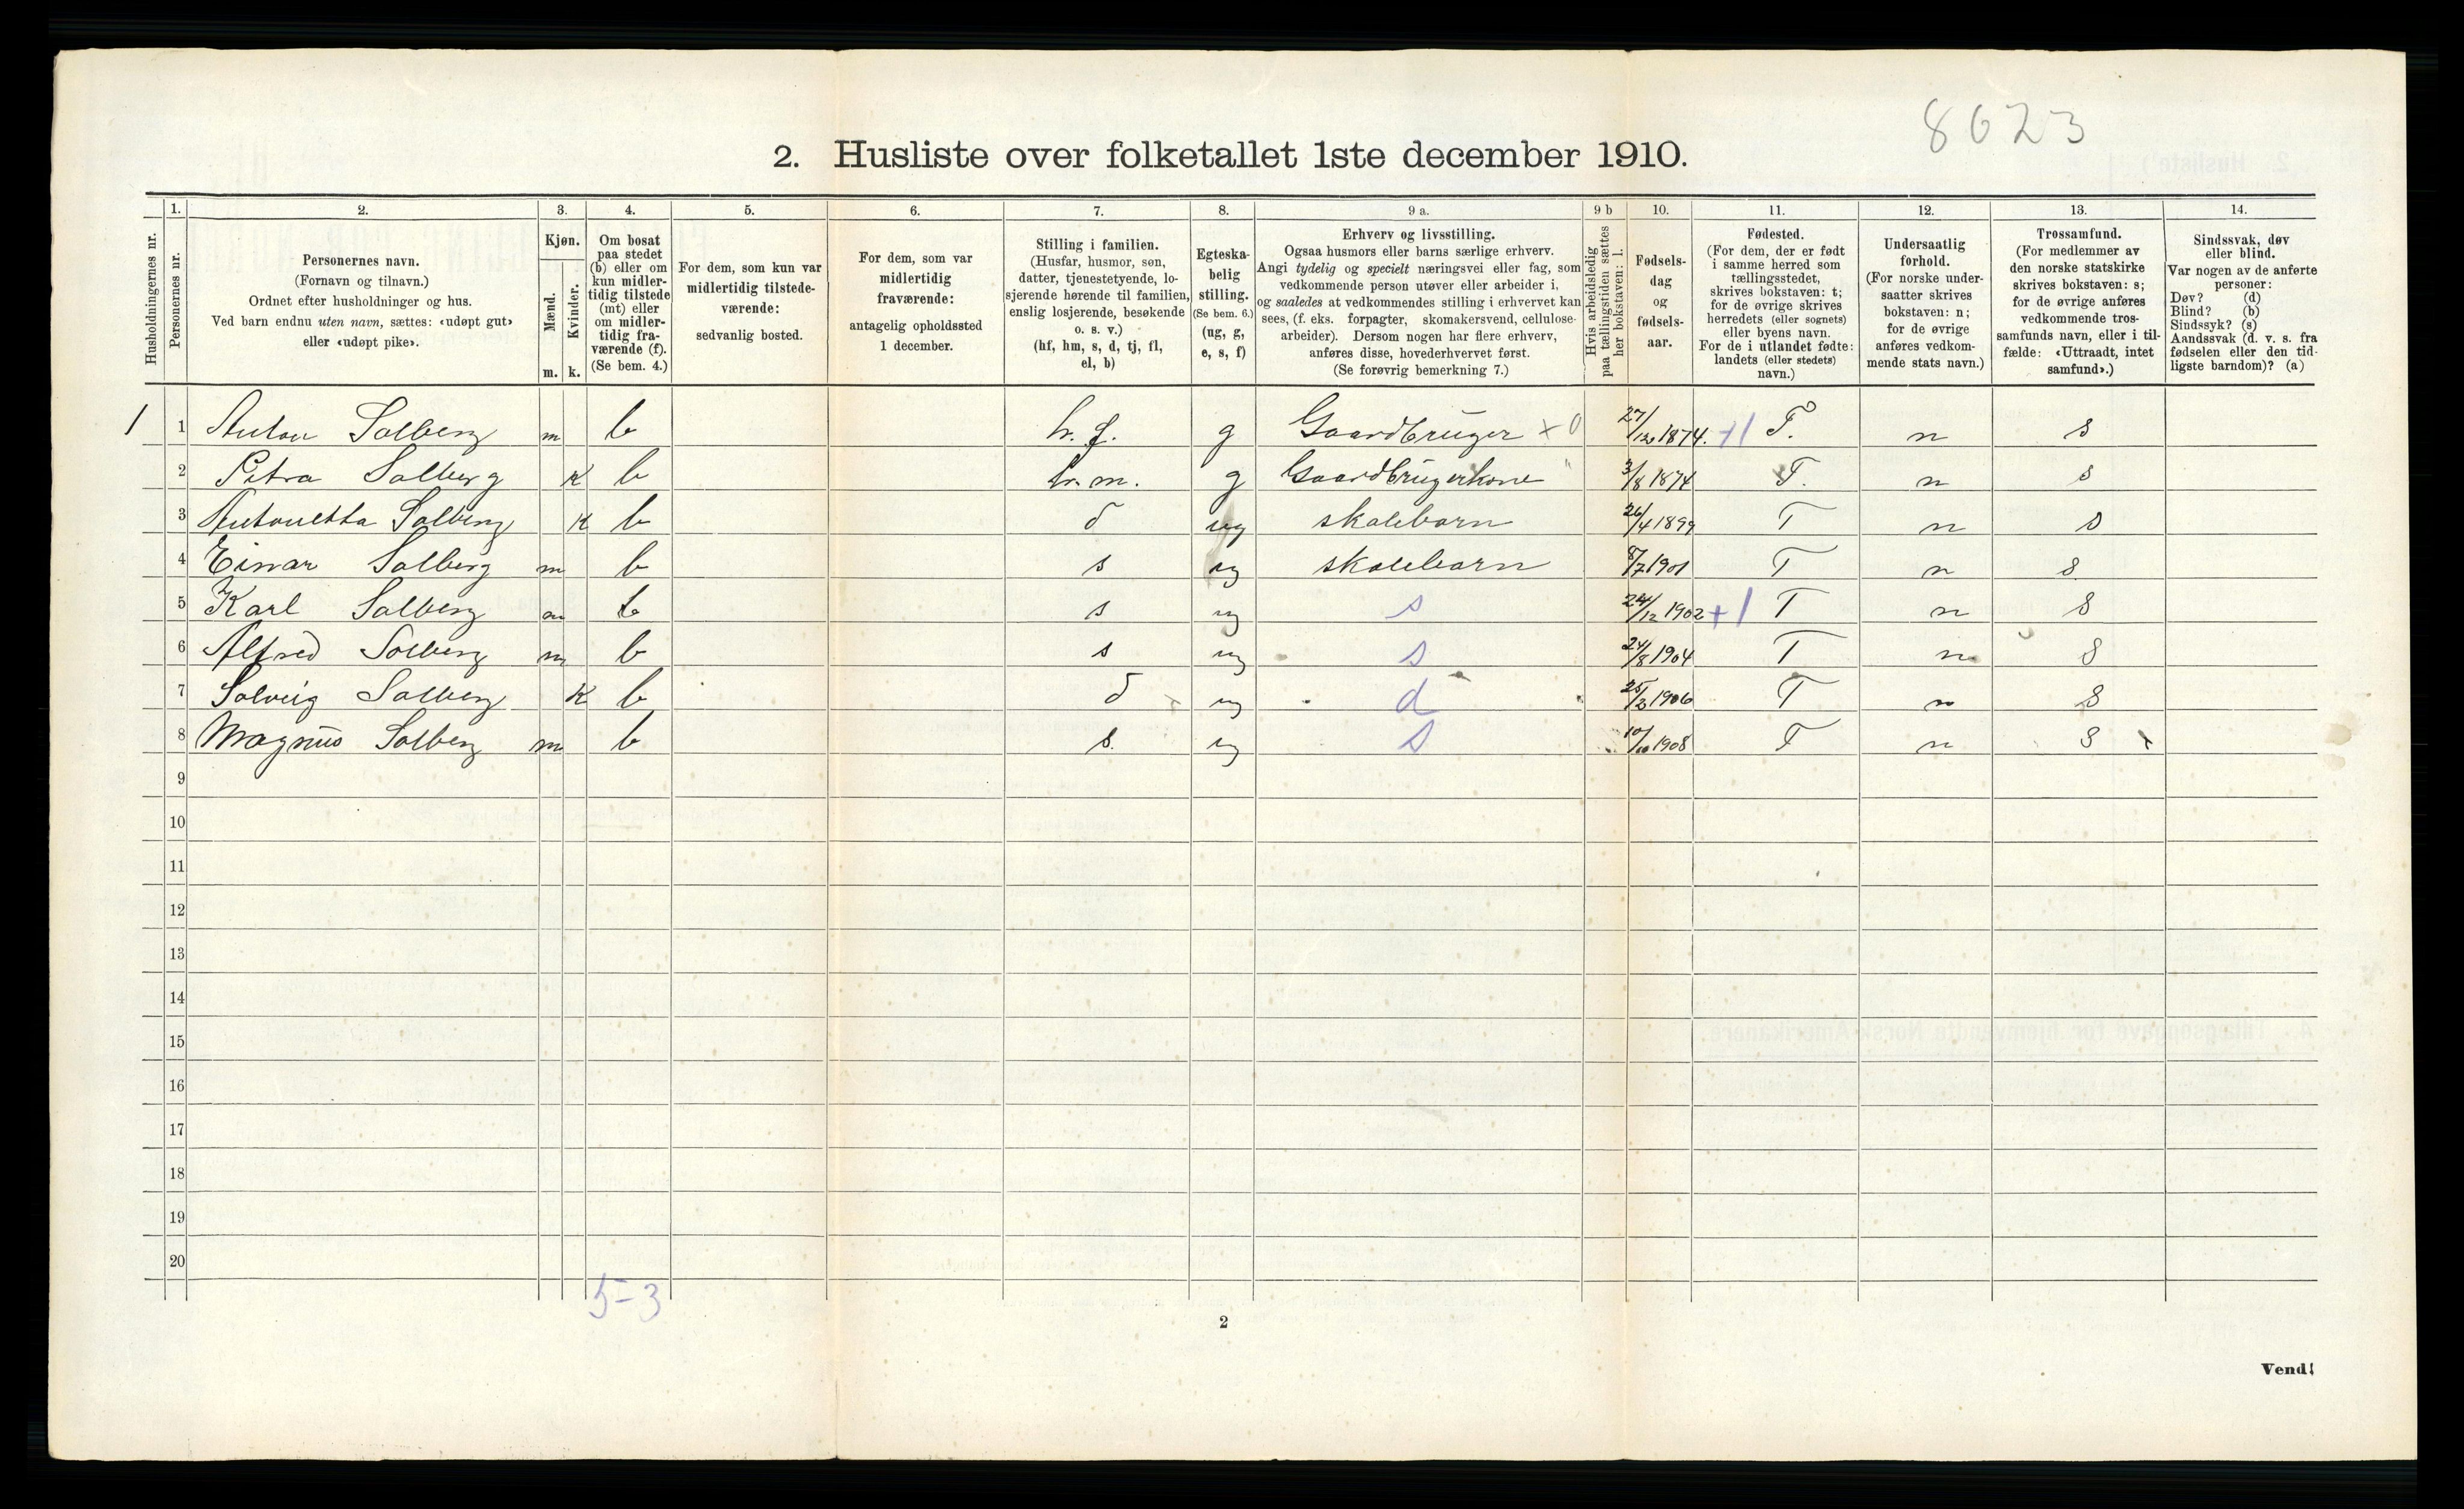 8623
2. Husliste over folketallet 1ste december 1910.
Husholdningernes nr.
1.
Personernes nr.
2.
Personernes navn.
(Fornavn og tilnavn.)
Ordnet efter husholdninger og hus.
Ved barn endnu uten navn, sættes: «udøpt gut»
eller «udøpt pike».
3.
Kjøn.
Mænd.
Kvinder.
m. k.
4.
Om bosat
paa stedet
(b) eller om
kun midler-
tidig tilstede
(mt) eller
om midler-
tidig fra-
værende (f).
(Se bem. 4.)
5.
For dem, som kun var
midlertidig tilstede-
værende:
sedvanlig bosted.
6.
For dem, som var
midlertidig
fraværende:
antagelig opholdssted
1 december.
7.
Stilling i familien.
(Husfar, husmor, søn,
datter, tjenestetyende, lo-
sjerende hørende til familien,
enslig losjerende, besøkende
o. s. v.)
(hf, hm, s, d, tj, fl,
el, b)
8.
Egteska-
belig
stilling.
(Se bem. 6.)
(ug, g,
e, s, f)
9 a.
Erhverv og livsstilling.
Ogsaa husmors eller barns særlige erhverv.
Angi tydelig og specielt næringsvei eller fag, som
vedkommende person utøver eller arbeider i,
og saaledes at vedkommendes stilling i erhvervet kan
sees, (f. eks. forpagter, skomakersvend, cellulose-
arbeider). Dersom nogen har flere erhverv,
anføres disse, hovederhvervet først.
(Se forøvrig bemerkning 7.)
9 b
Hvis arbeidsledig
paa tællingstiden sættes
her bokstaven: l.
10.
Fødsels-
dag
og
fødsels-
aar.
11.
Fødested.
(For dem, der er født
i samme herred som
tællingsstedet,
skrives bokstaven: t;
for de øvrige skrives
herredets (eller sognets)
eller byens navn.
For de i utlandet fødte:
landets (eller stedets)
navn.)
12.
Undersaatlig
forhold.
(For norske under-
saatter skrives
bokstaven: n;
for de øvrige
anføres vedkom-
mende stats navn.)
13.
Trossamfund.
(For medlemmer av
den norske statskirke
skrives bokstaven: s;
for de øvrige anføres
vedkommende tros-
samfunds navn, eller i til-
fælde: «Uttraadt, intet
samfund».)
14.
Sindssvak, døv
eller blind.
Var nogen av de anførte
personer:
Døv? (d)
Blind? (b)
Sindssyk? (s)
Aandssvak (d. v. s. fra
fødselen eller den tid-
ligste barndom)? (a)
1 1 Anton Solberg m b h. f. g Gaardbruger x 0 27/12 1874. +1 T. n s
2 Petra Solberg K b h. m. g Gaardbrugerkone " 3/8 1874 T. n s
3 Antonetta Solberg K b d ug skolebarn 26/4 1899 T n s
4 Einar Solberg m b s ug skolebarn 8/7 1901 T n s
5 Karl Solberg m b s ug s 24/12 1902 +1 T n s
6 Alfred Solberg m b s ug s 24/8 1904 T n s
7 Solveig Solberg K b d ug d 25/2 1906 T n s
8 Magnus Solberg m b s. ug s 10/10 1908 T n s
9
10
11
12
13
14
15
16
17
18
19
20
5-3
2
Vend!